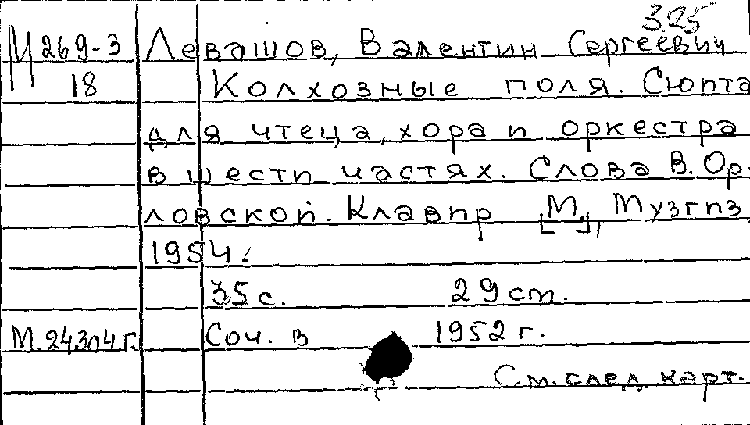 325
М 269-3 Левашов, Валентин Сергеевич
18 Колхозные поля. Сюита
для чтеца, хора и оркестра
в шести частях. Слова В. Ор-
ловской. Клавир [М.], Музгиз,
1954.
35 с. 29 cm.
М. 24304 г. Соч. в 1952 г.
См. след. карт.